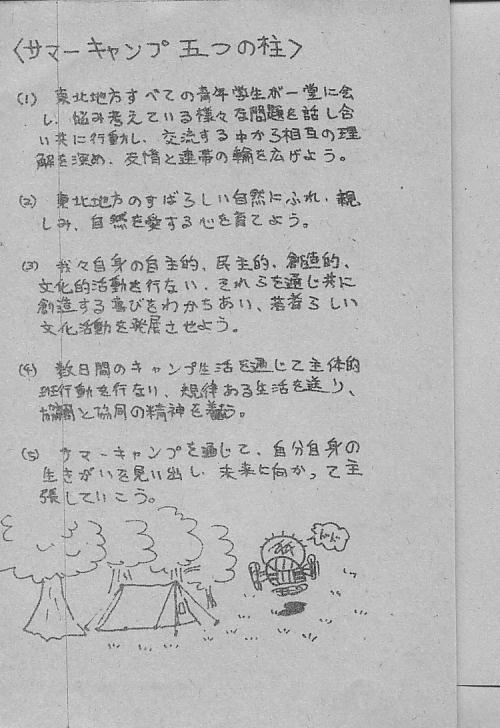 〈サマーキャンプ五つの柱〉
(1) 東北地方すべての青年学生が一堂に会
し、悩み考えている様々な問題を話し合
い共に行動し、交流する中から相互の理
解を深め、友情と連帯の輪を広げよう。
(2) 東北地方のすばらしい自然にふれ、親
しみ、自然を愛する心を育てよう。
(3) 我々自身の自主的、民主的、創造的、
文化的活動を行ない、それらを通じ共に
創造する喜びをわかちあい、若者らしい
文化活動を発展させよう。
(4) 数日間のキャンプ生活を通じて主体的
班行動を行なり、規律ある生活を送り、
協調と協同の精神を養う。
(5) サマーキャンプを通じて、自分自身の
生きがいを見い出し、未来に向かって主
張していこう。
ドド